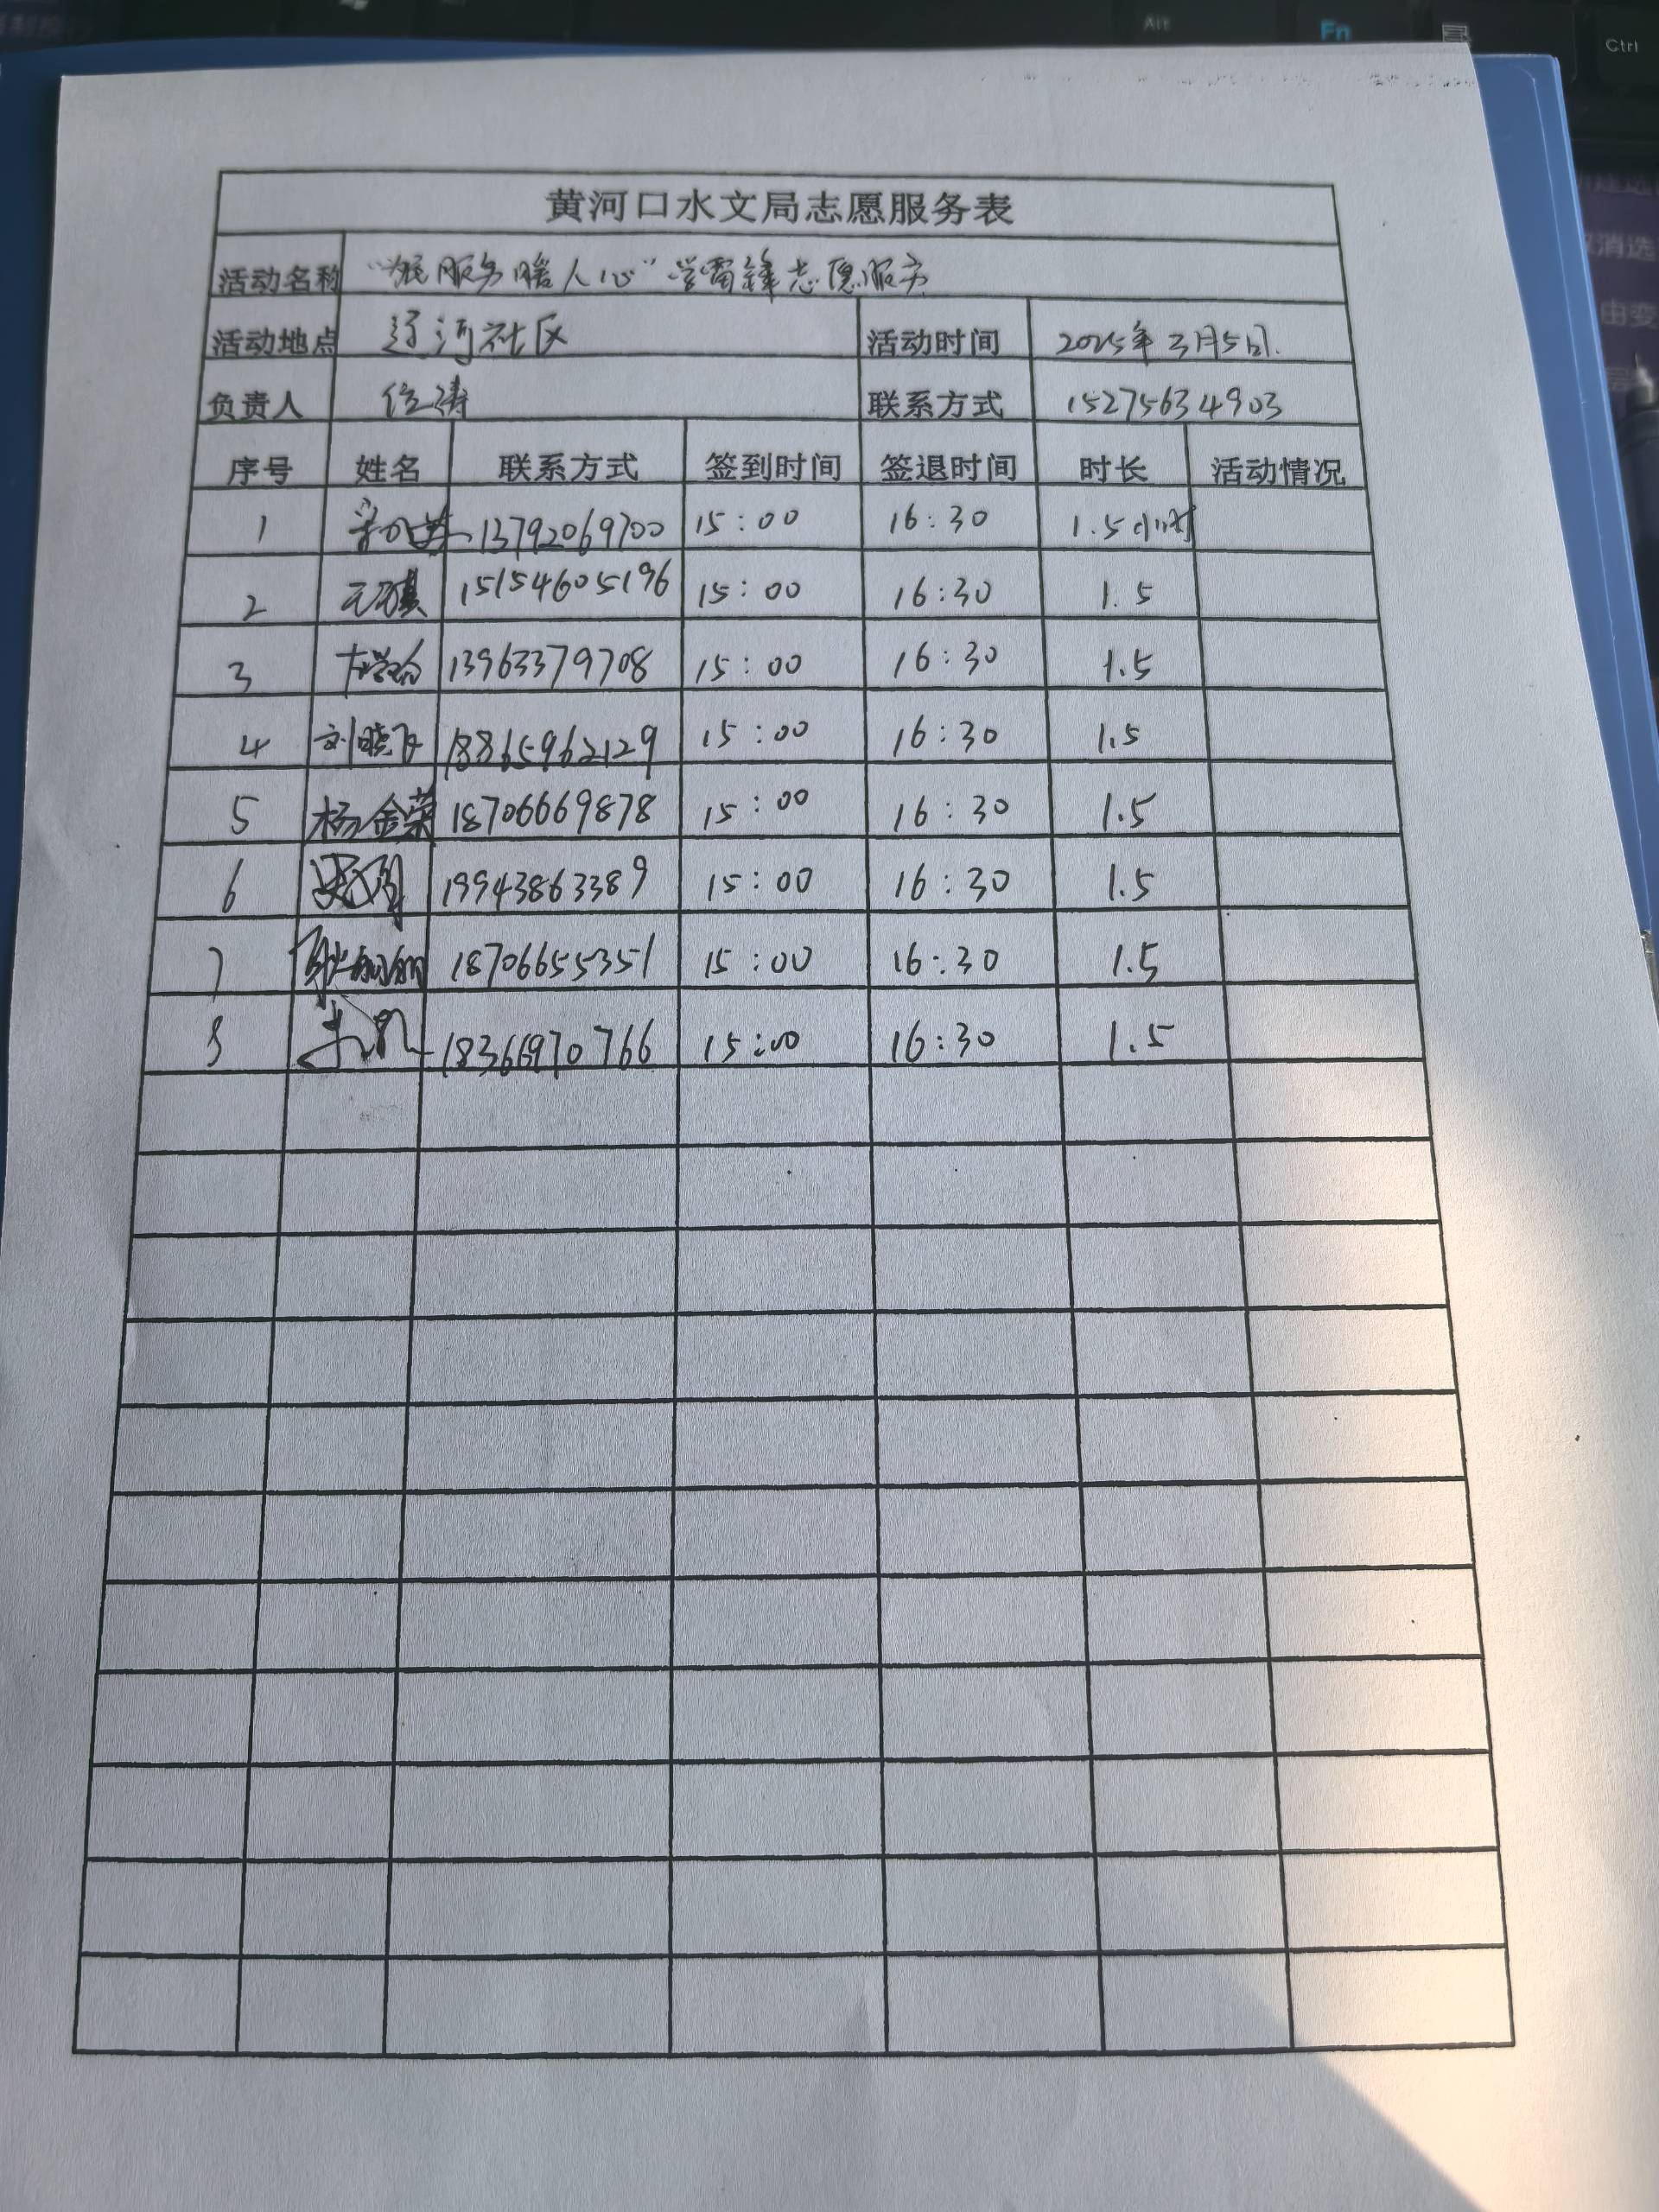 黄河口水文局志愿服务表
活动名称 " 服务暖人心"学雷锋志愿服务
活动地点 辽河社区 活动时间 2025年3月5日.
负责人 位涛 联系方式 15275634903
序号 姓名 联系方式 签到时间 签退时间 时长 活动情况
1 13792069700 15:00 16:30 1.5小时
2 15154605196 15:00 16:30 1.5
3 13963379708 15:00 16:30 1.5
4 刘晓飞 18865962129 15:00 16:30 1.5
5 杨金荣 18706669878 15:00 16:30 1.5
6 19943863389 15:00 16:30 1.5
7 18706655351 15:00 16:30 1.5
8 18366970766 15:00 16:30 1.5
Alt
Fn
Ctrl